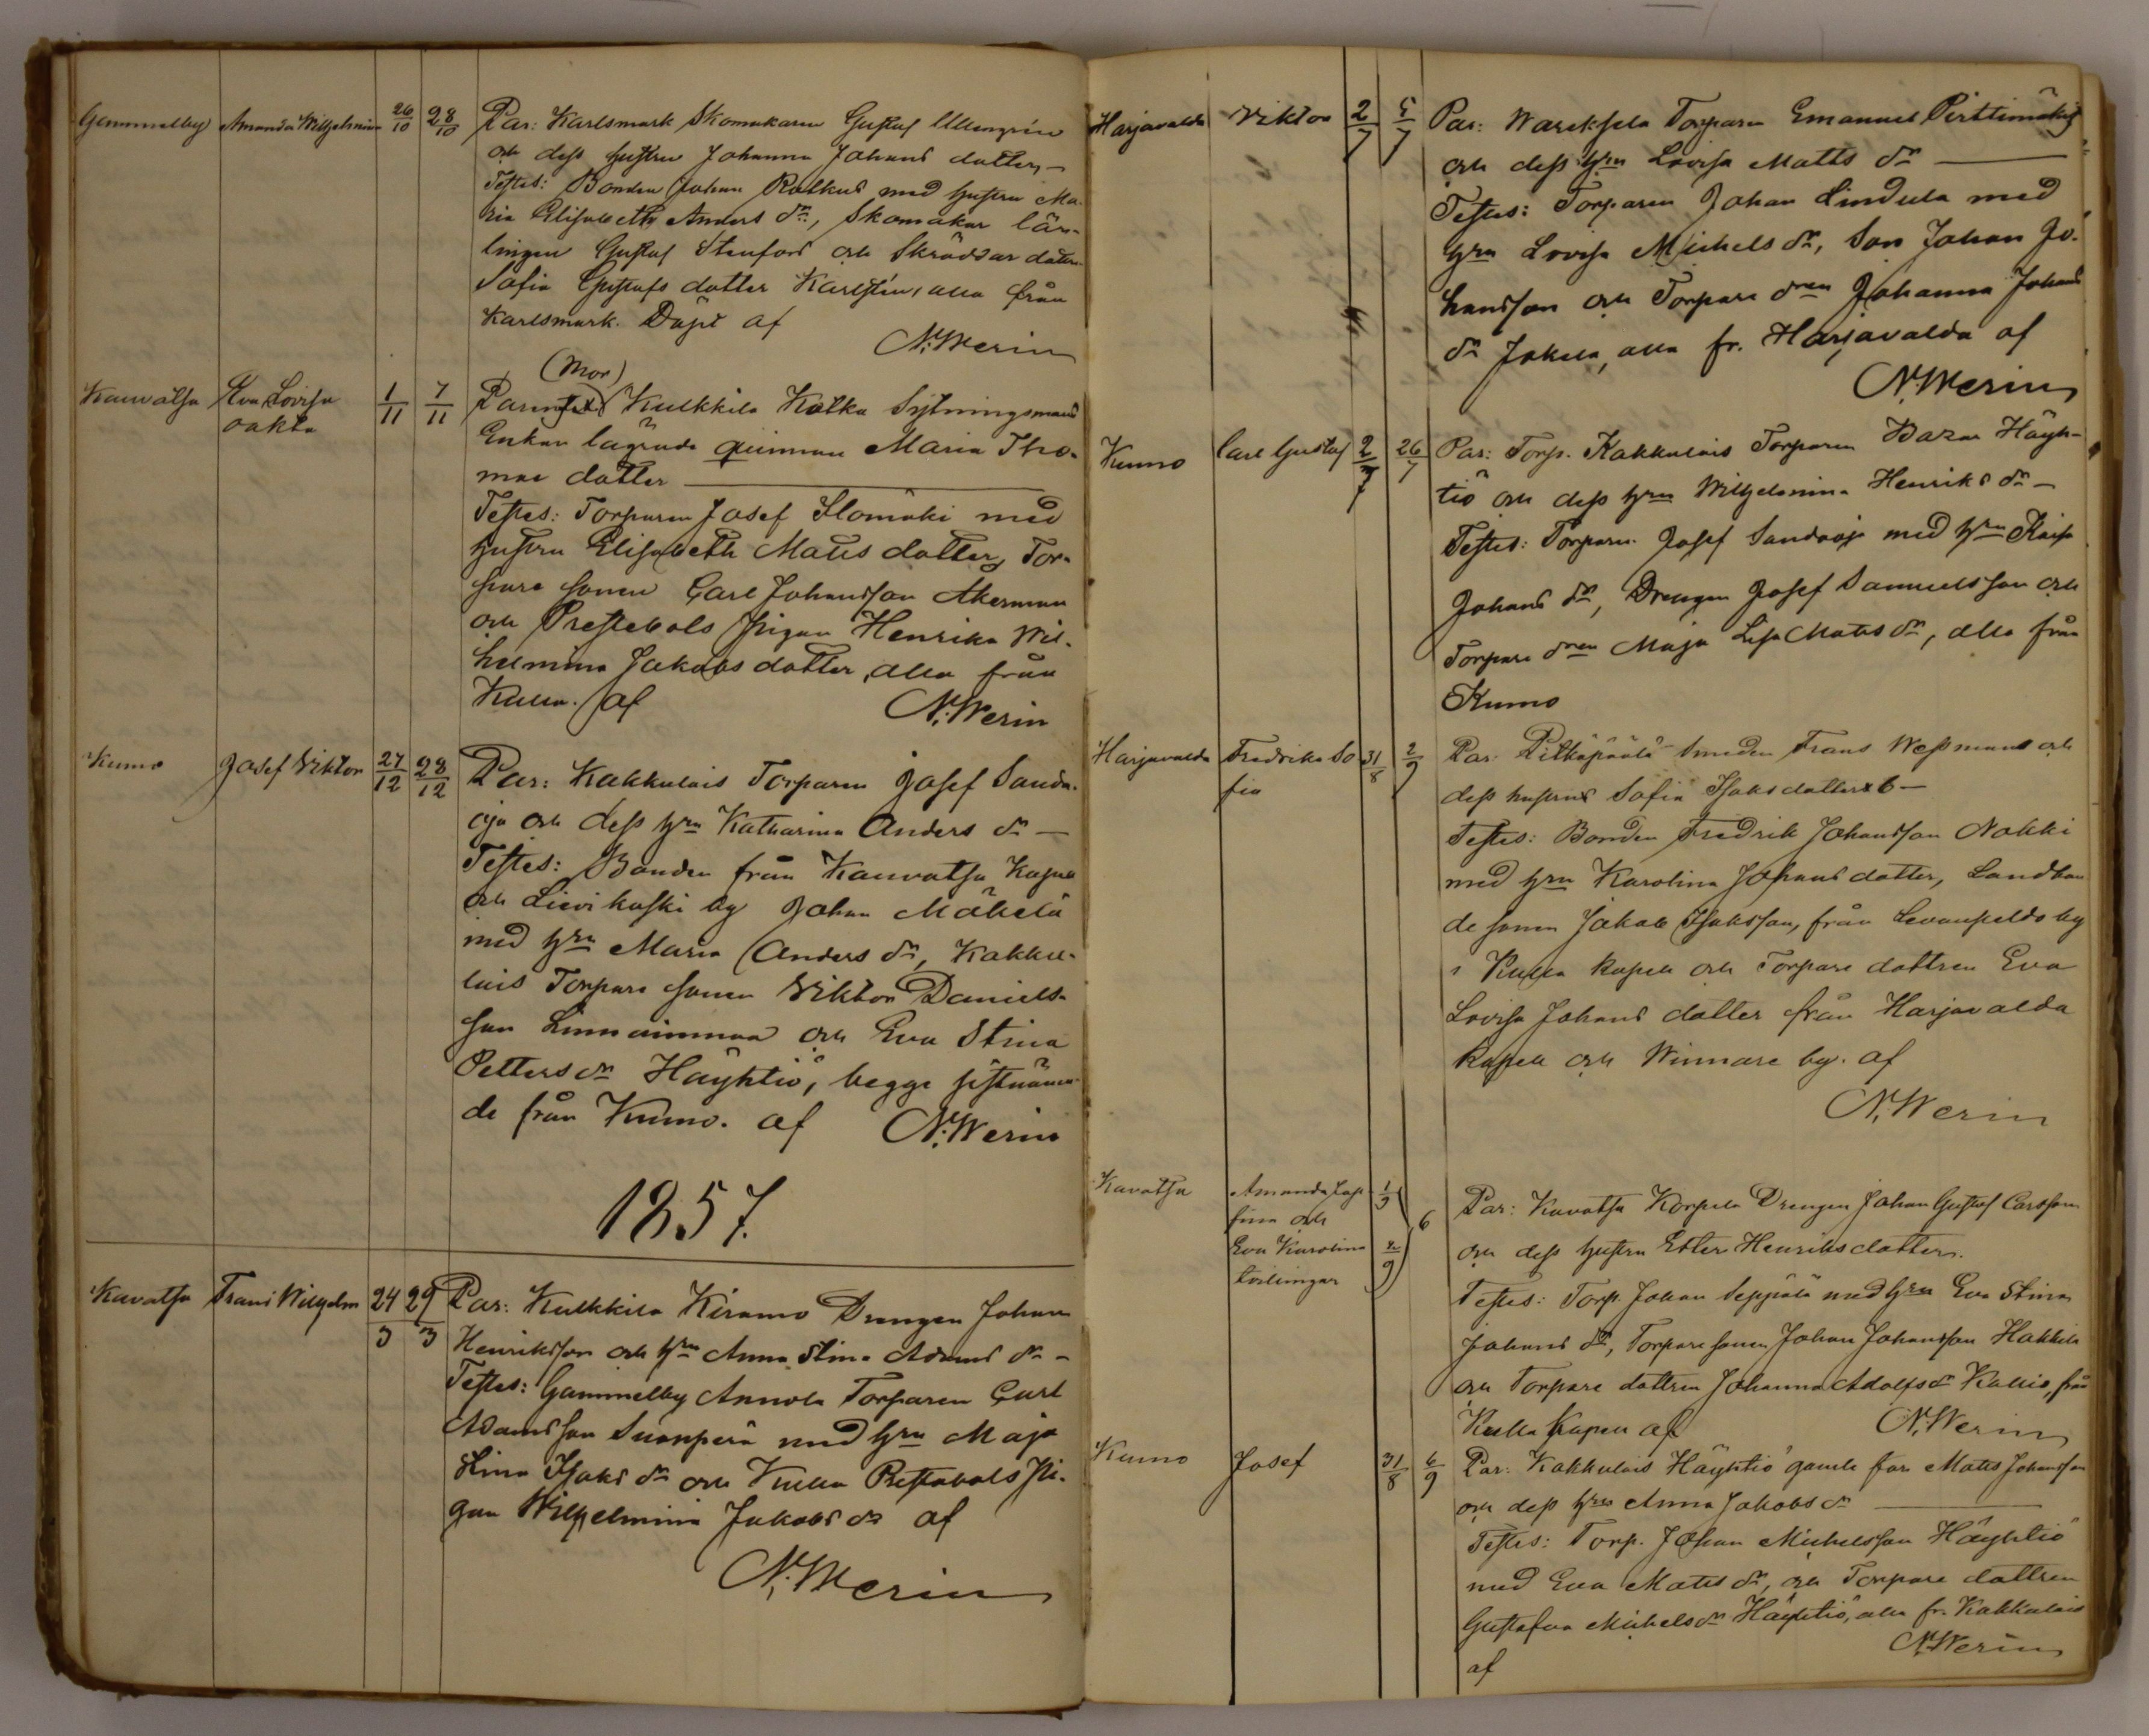 Gammelby Amanda Wilhelmina 26/10 28/10 Par: Karlsmark Skomakaren Gustaf Ullengrén
och dess hustru Johanna Johans dotter,—
Testes: Bonden Johan Ratkus med hustru Ma-
ria Elisabeth Anders dr, Skomakar lär-
lingen Gustaf Stenfors och Skräddar dottren
Sofia Gustafs dotter Karlstén, alla från
Karlsmark. Döpt af
N. Werin
(Mor)
Kauvatsa Eva Lovisa 1/11 7/11 Kulkkila Kotka Sytningsmans
oäkta Enkan lägrade quinnan Maria Tho-
mas dotter —
Testes: Torparen Josef Ilomäki med
hustru Elisabeth Matts dotter, Tor-
pare sonen Carl Johansson Akerman
och Prestebols pigan Henrika Wil-
helmina Jakobs dotter, alla från
Kulla. af
N. Werin
Kumo Josef Viktor 27/12 28/12 Par: Kakkulais Torparen Josef Sanda-
oja och dess hru Katharina Anders dr —
Testes: Bonden från Kauvatsa Kapell
och Lievikoski by Johan Mäkelä
med hru Maria Anders dr, Kakku-
lais Torpare sonen Viktor Daniels-
son Linnainmaa och Eva Stina
Petters dr Häyhtiö, begge sistnämn-
de från Kumo. af N. Werin
1857.
Kavatsa Frans Wilhelm 24/3 29/3 Par: Kulkkila Kiramo Drengen Johan
Henriksson och hru Anna Stina Adams dr —
Testes: Gammelby Annola Torparen Carl
Adamsson Suonperä med hru Maja
Stina Isaks dr och Kulla Prestabols Pi-
gan Wilhelmina Jakobs dr af
N. Werin
Harjavalda Viktor 2/7 5/7 Par: Torparen Emanuel Pirttimäki
och dess hru Lovisa Matts dr —
Testes: Torparen Johan Lindula med
hru Lovisa Michels dr, Son Johan Jo-
hansson och Torpare dren Johanna Johans
dr Jokela, alla fr. Harjavalda af
N. Werin
Kumo Carl Gustaf 2/7 26/7 Par: Torp. Kakkulais Torparen Häyh-
tiö och dess hru Wilhelmina Henriks dr —
Testes: Torparen Josef Sandaoja med hru Kaisa
Johans dr, Drengen Josef Samuelsson och
Torpare dren Maja Lisa Matts dr, alla från
Kumo
Harjavalda Fredrika So 31/8 2/9 Par. Pitkäpäälä Smeden Frans Wessmans och
fia dess hustrus Sofia Isaksdotters b —
Testes: Bonden Fredrik Johansson Nokki
med hru Karolina Johans dotter, Landbon
de sonen Jakob Isaksson, från Levanpelto by
i Kulla kapell och Torpare dottren Eva
Lovisa Johans dotter från Harjavalda
kapell och Winnare by. af
N. Werin
Kavatsa Amanda Jose 1/9 6 Par: Kavatsa Korpela Drengen Johan Gustaf Carlsson
fina och
Eva Karolina 2/9 och dess hustru Ester Henriksdotter.
tvillingar
Testes: Torp. Johan Seppälä med hru Eva Stina
Johans dr, Torpare sonen Johan Johansson Hakkila
och Torpare dottren Johanna Adolfs dr Kallio, från
Kulla kapell af N. Werin
Kumo Josef 31/8 6/9 Par: Kakkulais Häyhtiö gamle far Matts Johansson
och dess hru Anna Jakobs dr —
Testes: Torp. Johan Michelsson Häyhtiö
med Eva Matts dr, och Torpare dottren
Gustafva Michels dr Häyhtiö, alla fr. Kakkulais
N. Werin
af